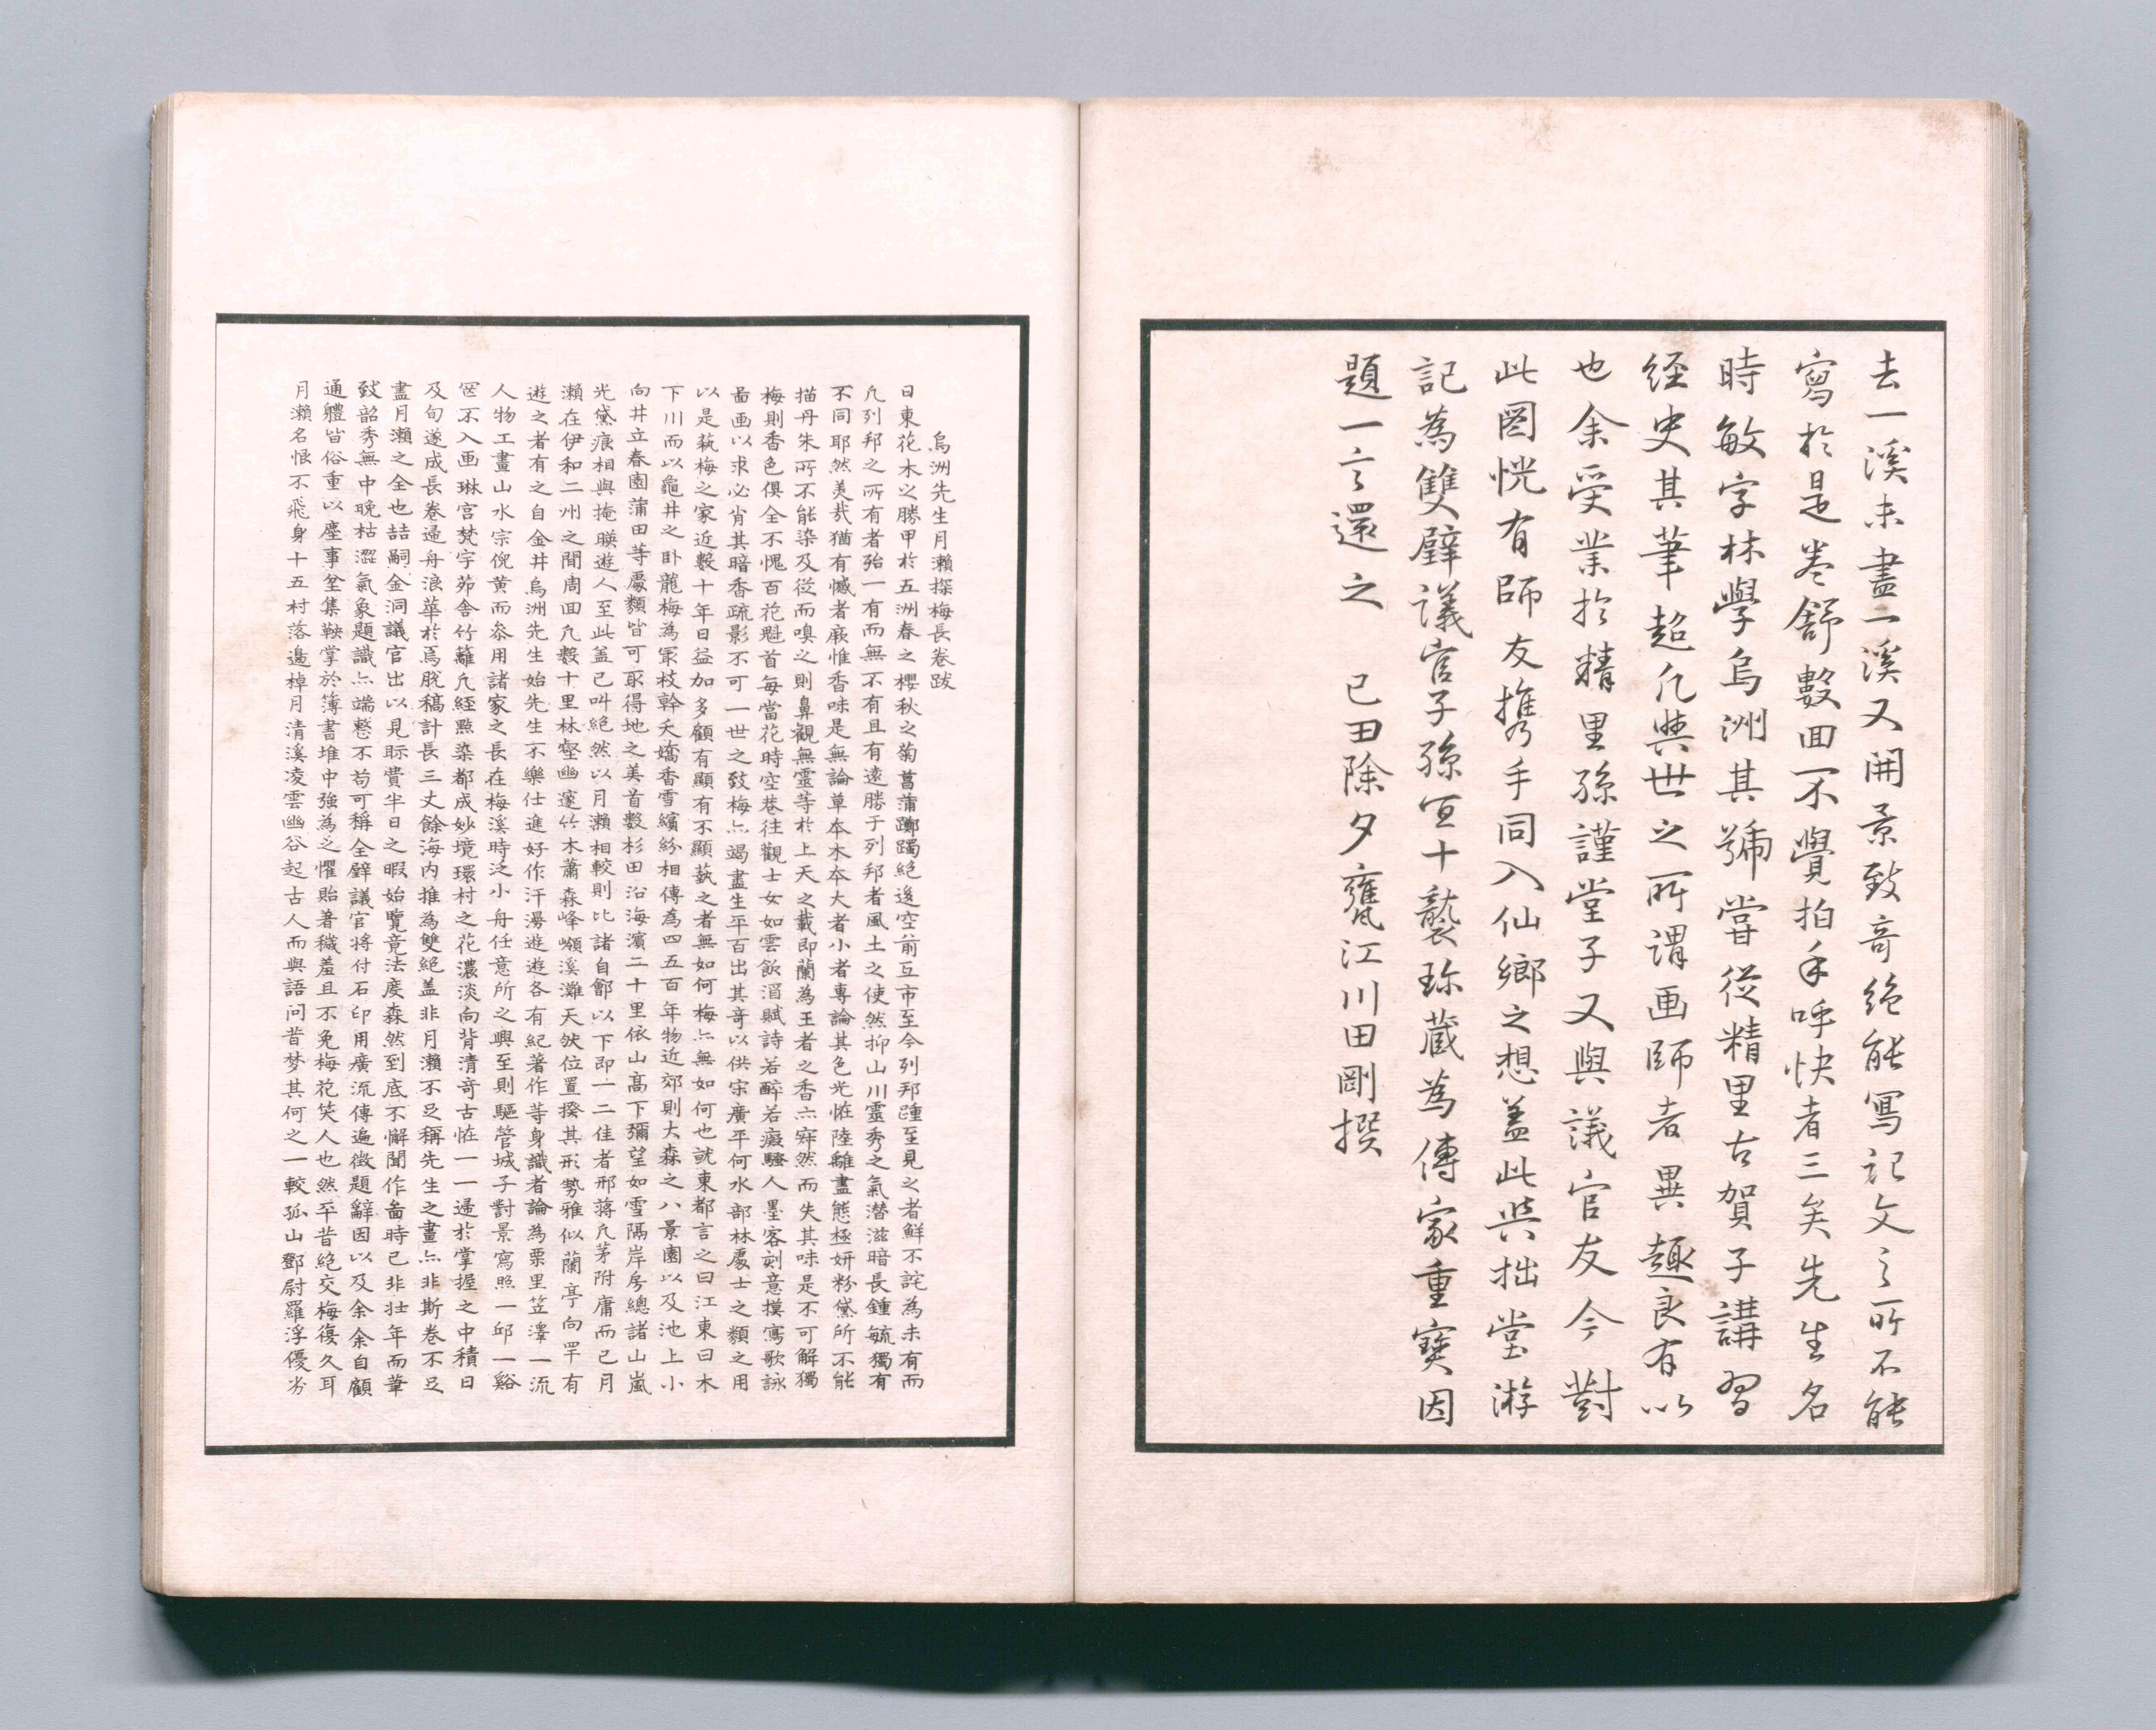 去一溪未盡一溪又開景致奇絶能寫記文之所不能
寫於是卷舒數回不覺拍手呼快者三矣先生名
時敏字林學烏洲其號嘗從精里古賀子講習
経史其筆超凡與世之所謂画師者異趣良有以
也余受業於精里孫謹堂子又與議官友今對
此圖恍有師友携手同入仙鄉之想盖此與拙堂游
記為雙璧議官子孫宜十襲珎蔵為傳家重寳因
題一言還之 己田除夕甕江川田剛撰
烏洲先生月瀨探梅長卷跋
日東花木之勝甲於五洲春之櫻秋之菊菖蒲躑躅絶後空前互市至今列邦踵至見之者鮮不詫為未有而
凢列邦之所有者殆一有而無不有且有遠勝于列邦者風土之使然抑山川靈秀之氣潜滋暗長鍾毓獨有
不同耶然美㢤猶有憾者厥惟香味是無論草本木本大者小者專論其色光恠陸離盡態極妍粉黛所不能
描丹朱所不能染及從而嗅之則鼻觀無靈等於上天之載即蘭為王者之香亦寂然而失其味是不可解獨
梅則香色俱全不愧百花魁首每當花時空巷往觀士女如雲飲酒賦詩若醉若癡騷人墨客刻意摸寫歌詠
啚画以求必肖其暗香疏影不可一世之致梅亦竭盡生平百出其奇以供宋廣平何水部林處士之類之用
以是蓺梅之家近數十年日益加多顧有顯有不顯蓺之者無如何梅亦無如何也就東都言之曰江東曰木
下川而以龜井之卧龍梅為冣枝幹夭嬌香雪繽紛相傳為四五百年物近郊則大森之八景園以及池上小
向井立春園蒲田等處類皆可取得地之美首數杉田沿海濱二十里依山髙下彌望如雪隔岸房總諸山嵐
光黛痕相與掩暎遊人至此盖已叫絶然以月瀨相較則比諸自鄶以下即一二佳者邢蒋凢茅附庸而已月
瀨在伊和二州之間周回凢數十里林壑幽邃竹木蕭森峰嶺溪灘天然位置揆其形勢雅似蘭亭向罕有
遊之者有之自金井烏洲先生始先生不樂仕進好作汗漫遊遊各有紀著作等身識者論為栗里笠澤一流
人物工畫山水宗倪黄而叅用諸家之長在梅溪時泛小舟任意所之興至則驅管城子對景寫照一邱一谿
罔不入画琳宮梵宇茆舎竹籬凢経㸃染都成妙境環村之花濃淡向背清奇古恠一一遝於掌握之中積日
及旬遂成長卷歸舟浪華於焉脱稿計長三丈餘海内推為雙絶盖非月瀨不足稱先生之畫亦非斯卷不足
盡月瀨之全也喆嗣金洞議官出以見眎費半日之暇始覽竟法度森然到底不懈聞作畵時已非壮年而筆
致韶秀無中晚枯澀氣象題識亦端整不苟可稱全壁議官将付石印用廣流傳遍徴題辭因以及余余自顧
通體皆俗重以塵事坌集鞅掌於簿書堆中強為之懼貽著穢羞且不免梅花笑人也然平昔絶交梅復久耳
月瀨名恨不飛身十五村落邊棹月清溪凌雲幽谷起古人而與語问昔梦其何之一較孤山鄧尉羅浮優劣